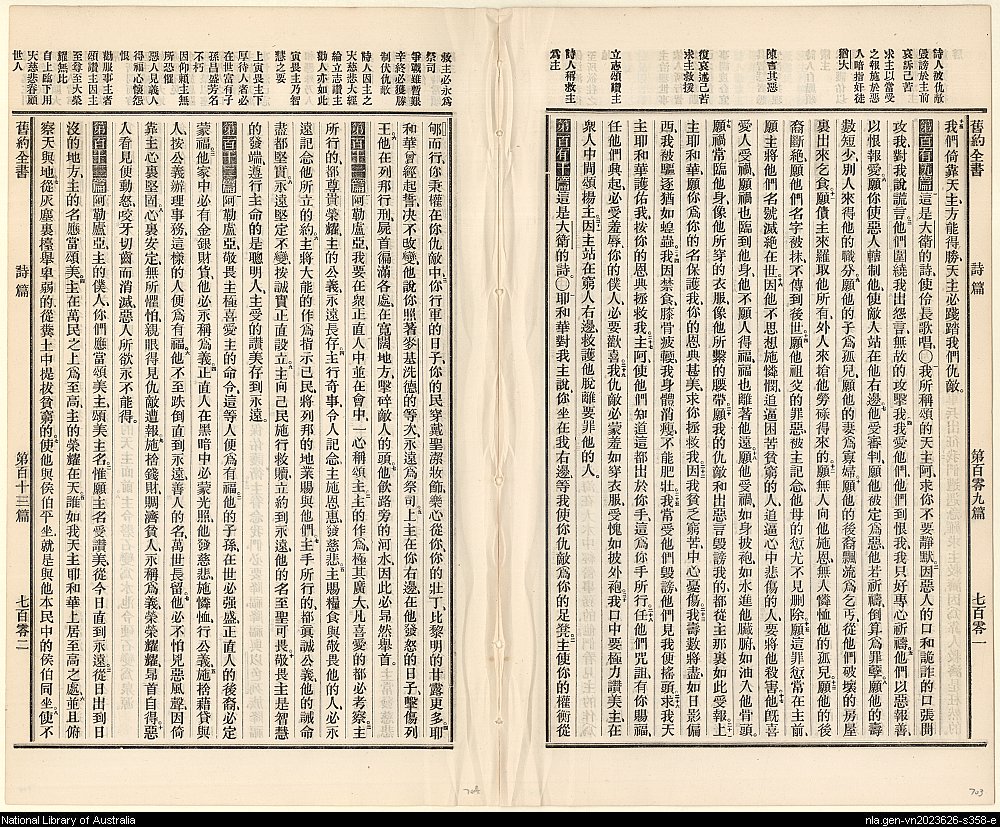 舊約全書　詩篇　第百零九篇　七百零一
詩人被仇敵
毀謗於主前
哀訴己苦
求主以當受
之報施於惡
人暗指奸徒
猶大
陳言其惡
復哀述己苦
求主救援
立志頌讚主
詩人稱救主
為主
我們倚靠天主方能得勝天主必踐踏我們仇敵
第百有九篇這是大衛的詩使伶長歌唱〇我所稱頌的天主阿求你不要靜默因惡人的口和詭詐的口張開
攻我對我說謊言他們圍繞我出怨言無故的攻擊我我愛他們他們到恨我我只好專心祈禱他們以惡報善
以恨報愛願你使惡人轄制他使敵人站在他右邊他受審判願他被定為惡他若祈禱倒算為罪孽願他的壽
數短少別人來得他的職分願他的子為孤兒願他的妻為寡婦願他的後裔飄流為乞丐從他們破壞的房屋
裏出來乞食願債主來羅取他所有外人來搶他勞碌得來的願無人向他施恩無人憐恤他的孤兒願他的後
裔斷絕願他們名字被抹不傳到後世願他祖父的罪惡被主記念他母的愆尤不見刪除願這罪愆常在主前
願主將他們名號滅絕在世因他不思想施憐憫追逼困苦貧窮的人追逼心中悲傷的人要將他殺害他既喜
愛人受禍願禍也臨到他身他不願人得福福也離著他遠願他愛禍如身披袍如水進他臟腑如油入他骨頭
願禍常臨他身像他所穿的衣服像他所繫的腰帶願我的仇敵和出惡言毀謗我的都從主那裏如此受報上
主耶和華願你為你的名保護我你的恩典甚美求你拯救我因我貧乏窮苦中心憂傷我壽數將盡如日影偏
西我被驅逐猶如蝗蟲我因禁食膝骨疲輭我身體消瘦不能肥壯我常受他們毀謗他們見我便搖頭求我天
主耶和華護佑我按你的恩典拯救我主阿使他們知道這都出於你手這為你手所行任他們咒詛有你賜福
任他們興起必受羞辱你的僕人必要歡喜我仇敵必蒙羞如穿衣服受愧如披外袍我口中要極力讚美主在
衆人中間頌揚主因主站在窮人右邊救護他脫離要罪他的人
第百有十篇這是大衛的詩〇耶和華對我主說你坐在我右邊等我使你仇敵為你的足凳主使你的權衡從
703
舊約全書　詩篇　第百十三篇　七百零二
救主必永為
祭司
爭戰雖暫艱
辛終必獲勝
制伏仇敵
詩人因主之
大慈悲大經
綸立志讚主
勸人亦如此
寅畏主乃智
慧之要
上寅畏主下
厚待人者必
在世富有子
孫昌盛芳名
不朽
因仰賴主無
所恐懼
惡人見義人
得福心懷怨
恨
勸服事主者
頌讚主因主
至尊至大榮
耀無比
自上臨下用
大慈悲眷顧
世人
郇而行你秉權在你仇敵中你行軍的日子你的民穿戴聖潔妝飾樂心從你你的壯丁比黎明的甘露更多耶
和華曾經起誓決不改變他說你照著麥基洗德的等次永遠為祭司上主在你右邊在他發怒的日子擊傷列
王他在列邦行刑屍首徧滿各處在寬闊地方擊碎敵人的頭他飲路旁的河水因此必昂然舉首
第百十一篇阿勒盧亞我要在衆正直人中並在會中一心稱頌主主的作為極其廣大凡喜愛的都必考察主
所行的都尊貴榮耀主的公義永遠長存主行奇事令人記念主施恩惠發慈悲主賜糧食與敬畏他的人必永
遠記念他所立的約主將大能的作為指示己民將列邦的地業賜與他們主手所行的都真誠公義他的誡命
盡都堅實永遠堅定不變按誠實正直設立主向己民施行救贖立約到永遠他的名至聖可畏敬畏主是智慧
的發端遵行主命的是聰明人主受的讚美存到永遠
第百十二篇阿勒盧亞敬畏主極喜愛主的命令這等人便為有福他的子孫在世必强盛正直人的後裔必定
蒙福他家中必有金銀財貨他必永稱為義正直人在黑暗中必蒙光照他發慈悲施憐恤行公義施捨藉貸與
人按公義辦理事務這樣的人便為有福他不至跌倒直到永遠善人的名萬世長留他必不怕兇惡風聲因倚
靠主心裏堅固心裏安定無所懼怕親眼得見仇敵遭報施捨錢財賙濟貧人永稱為義榮榮耀耀昂首自得惡
人看見便動怒咬牙切齒而消滅惡人所欲永不能得
第百十三篇阿勒盧亞主的僕人你們應當頌美主頌美主名惟願主名受讚美從今日直到永遠從日出到日
沒的地方主的名應當頌美主在萬民之上為至高主的榮耀在天誰如我天主耶和華上居至高之處並且俯
察天與地從灰塵裏擡舉卑弱的從糞土中提拔貧窮的使他與侯伯平坐就是與他本民中的侯伯同坐使不
704
National Library of Australia
nla.gen-vn2023626-s358-e